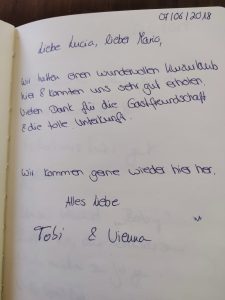 07/06/2018
Liebe Lucia, lieber Marco,
wir hatten einen wundervollen Kurzurlaub
hier & konnten uns sehr gut erholen.
Vielen Dank für die Gastfreundschaft
& die tolle Unterkunft.
Wir kommen gerne wieder hier her.
Alles Liebe
Tobi & Vienna